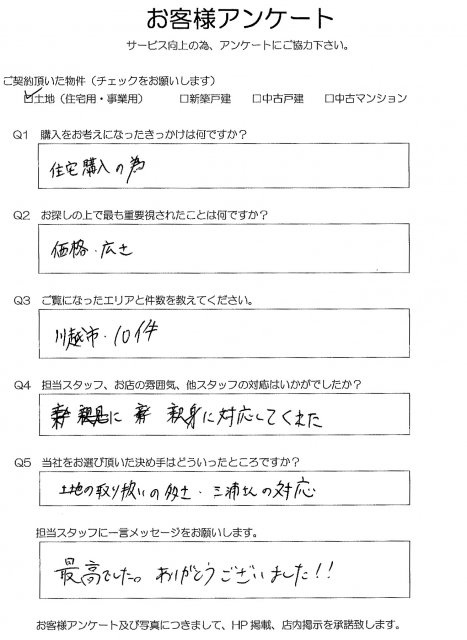 お客様アンケート
サービス向上の為、アンケートにご協力下さい。
ご契約頂いた物件（チェックをお願いします）
☑土地（住宅用・事業用） □新築戸建 □中古戸建 □中古マンション
Q1 購入をお考えになったきっかけは何ですか？
住宅購入の為
Q2 お探しの上で最も重要視されたことは何ですか？
価格・広さ
Q3 ご覧になったエリアと件数を教えてください。
川越市・10件
Q4 担当スタッフ、お店の雰囲気、他スタッフの対応はいかがでしたか？
に 親身に対応してくれた
Q5 当社をお選び頂いた決め手はどういったところですか？
土地の取り扱いの多さ・三浦さんの対応
担当スタッフに一言メッセージをお願いします。
最高でした。ありがとうございました!!
お客様アンケート及び写真につきまして、HP掲載、店内掲示を承諾致します。